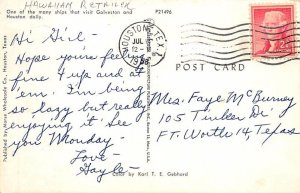 HAWAIIAN RETRIEVER
One of the many ships that visit Galveston and
Houston daily.
P21496
HOUSTON, TEX.
JUL
12
POST CARD
Hi Girl -
Hope you're feeling
fine & up and at
'em. I'm being
so lazy but really
enjoying it! See
you Monday.
Love -
Gayle -
Mrs. Faye McBurney
105 Tinker Dr.
FT. Worth 14, Texas
Color by Karl T. E. Gebhard
Published by Morris Wholesale Co., Houston, Texas